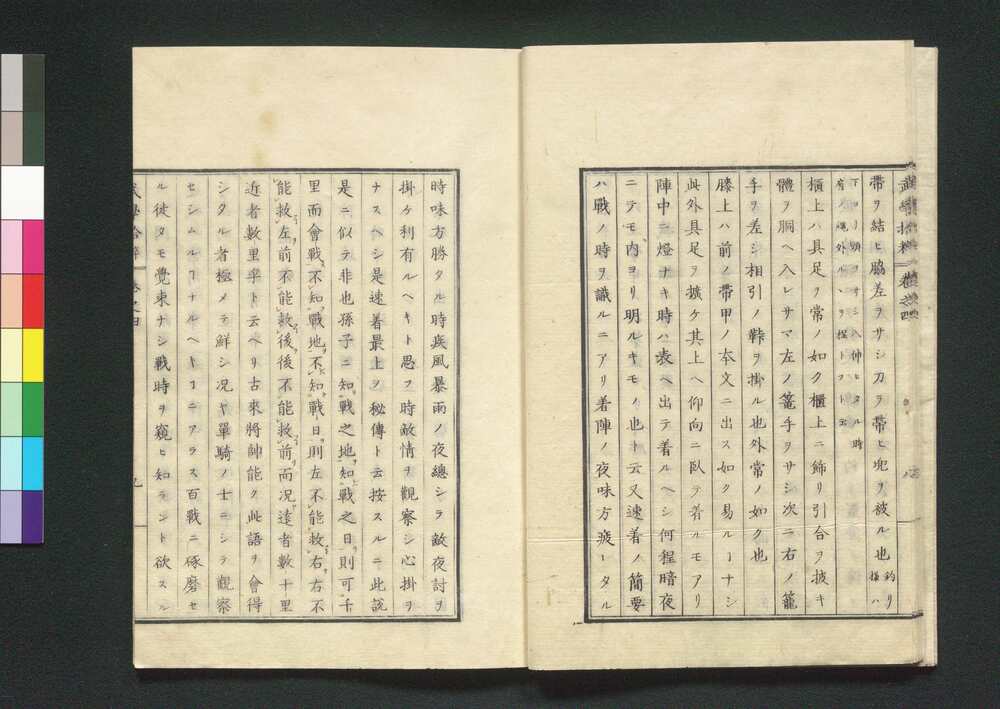 武學拾粹 卷之四
帶ヲ結ヒ脇差ヲサシ刀ヲ帶ヒ兜ヲ被ル也釣リ樣ハ
下ヨリ頭ヲオシ入仰ヒタル時
櫃上ハ具足ヲ常ノ如ク櫃上ニ飾リ引合ヲ披キ
體ヲ胴ヘ入レサマ左ノ篭手ヲサシ次ニ右ノ籠
手ヲ差シ相引ノ鞐ヲ掛ル也外常ノ如ク也
膝上ハ前ノ帶甲ノ本文ニ出ス如ク易ルーナシ
此外具足ヲ擴ケ其上ヘ仰向ニ臥テ着ルモアリ
陣中ニ燈ナキ時ハ表ヘ出テ着ルヘシ何程暗夜
ニテモ内ヨリ明ルキモノ也ト云又速着ノ簡要
ハ戰ノ時ヲ識ルニアリ着陣ノ夜味方疲ータル
時味方勝タル時疾風暴雨ノ夜總シテ敵夜討ヲ
掛ケ利有ルヘキト思フ時敵情ヲ觀察シ心掛ヲ
ナスヘシ是速着最上ノ秘傳ト云按スルニ此説
是ニ似テ非也孫子ニ知戰之地知戰之日則可千
里而會戰不知戰地不知戰日則左不能救右右不
能救左前不能救後後不能救前而況遠者數十里
近者數里乎ト云ヘリ古來將帥能ク此語ヲ會得
シタル者極メテ鮮シ况ヤ單騎ノ士ニシテ觀察
セシムルーナルヘキーニアラス百戰ニ琢磨セ
ル徒タモ覺束ナシ戰時ヲ窺ヒ知ラント欲スル